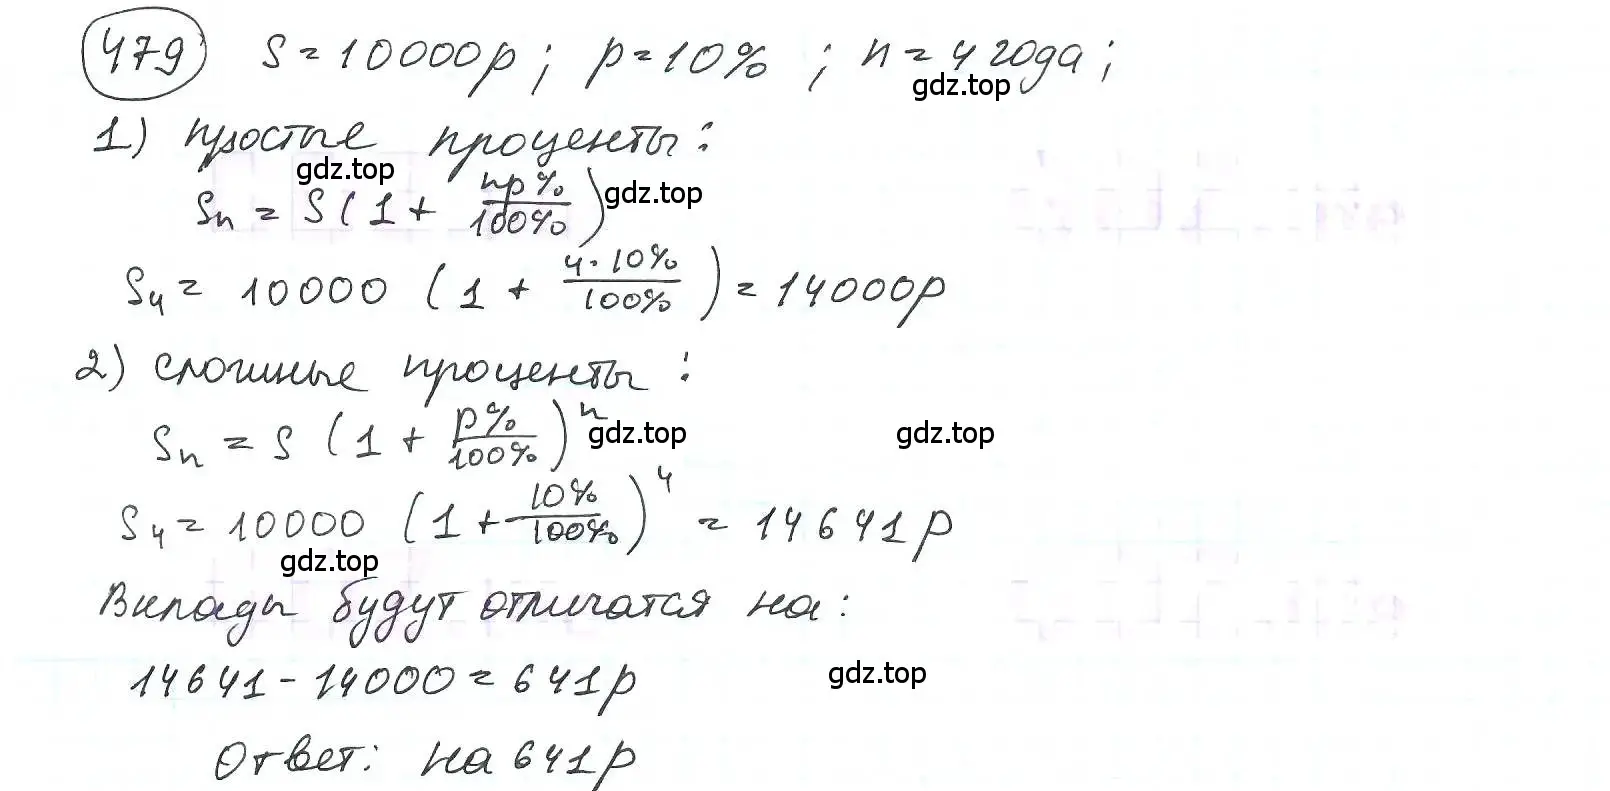 479 S = 10000р; p = 10% ; n = 4 года;
gdz.top
1) простые проценты:
gdz.top
Sn = S(1 + np%/100%) gdz.top
S4 = 10000 (1 + 4·10%/100%) = 14000р
2) сложные проценты:
Sn = S (1 + p%/100%)^n gdz.top gdz.top
S4 = 10000 (1 + 10%/100%)^4 = 14641р
gdz.top
Вклады будут отличатся на:
14641 - 14000 = 641р gdz.top
Ответ: на 641р